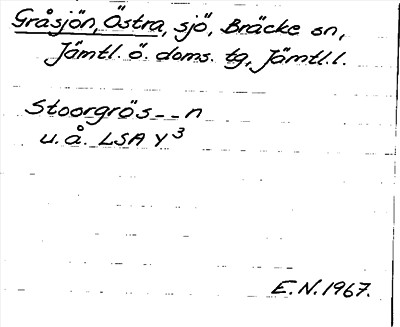 Gråsjön, Östra, sjö, Bräcke sn,
Jämtl. ö. doms. tg, Jämtl.l.
Stoorgrös--n
u.å. LSA Y³
E.N.1967.